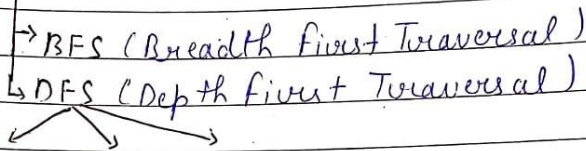 BFS (Breadth first Traversal)
DFS (Depth first Traversal)